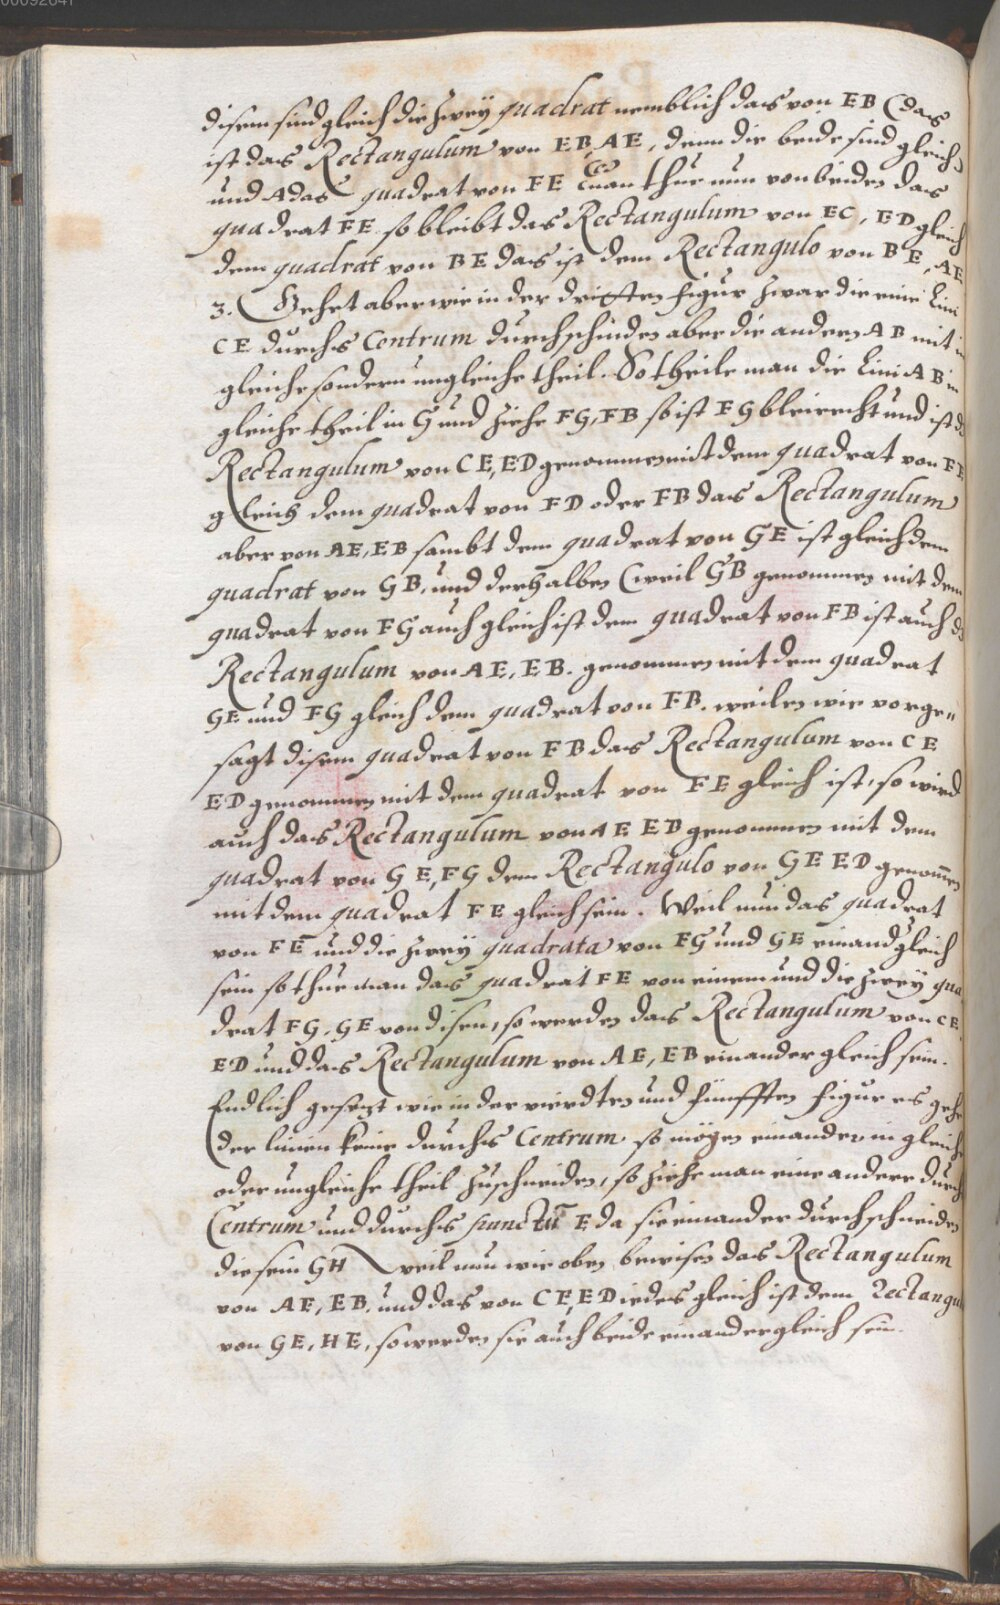 00092647
disem sind gleich die zwey quadrat nemblich das von EB (das
ist das Rectangulum von EB, AE, denn die beide sind gleich)
und das quadrat von FE man thue nun von beiden das
quadrat FE, so bleibt das Rectangulum von EC, ED gleich
dem quadrat von BE das ist dem Rectangulo von BE, AE
3. Gehet aber wie in der dritten figur zwar die eine Lini
CE durchs Centrum durchschindes aber die andern AB mit in
gleiche sondern ungleiche theil. So theile man die Lini AB in
gleiche theil in G und ziehe FG, FB so ist FG bleirecht und ist d
Rectangulum von CE, ED genommen mit dem quadrat von FE
gleich dem quadrat von FD oder FB das Rectangulum
aber von AE, EB sambt dem quadrat von GE ist gleich dem
quadrat von GB, und derhalben (weil GB genommen mit dem
quadrat von FG auch gleich ist dem quadrat von FB ist auch d
Rectangulum von AE, EB. genommen mit dem quadrat
GE und FG gleich dem quadrat von FB. weilen wie vorge=
sagt disem quadrat von FB das Rectangulum von CE
ED genommen mit dem quadrat von FE gleich ist, so wird
auch das Rectangulum von AE EB genommen mit dem
quadrat von GE, FG dem Rectangulo von GE ED genom̅en
mit dem quadrat FE gleich sein. Weil nun das quadrat
von FE und die zwey quadrata von FG und GE einand gleich
sein so thue man das quadrat FE von einem und die zwey qua
drat FG, GE von disen, so werden das Rectangulum von CE
ED und das Rectangulum von AE, EB einander gleich sein.
Endlich gesezt wie in der vierdten und fünfften figur es gehe
der linien keine durchs Centrum, so mögen einander in gleiche
oder ungleiche theil zuschneiden, so ziehe man eine andere durch
Centrum und durchs punctu̅ E da sie einander durchschneiden
die sein GH weil nun wie oben bewisen das Rectangulum
von AE, EB. und das von CE, ED iedes gleich ist dem Rectangul
von GE, HE, so werden sie auch beide einander gleich sein.